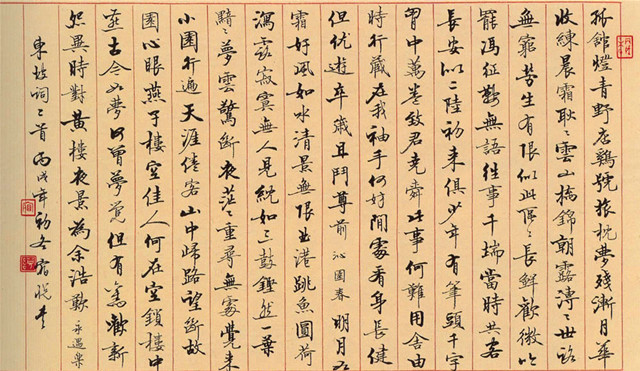 孤館燈青野店鷄號旅枕夢殘漸月華
收練晨霜耿〻雲山摛錦朝露漙〻世路
無窮勞生有限似此區〻長鮮歡微吟
罷馮征鞍無語往事千端當時共客
長安似二陸初來俱少年有筆頭千字
胷中萬卷致君堯舜此事何難用舍由
時行藏在我袖手何妨閒處看身長健
但優遊卒歲且鬥尊前 沁園春 明月如
霜好風如水清景無限曲港跳魚圓荷
瀉露寂寞無人見紞如三鼓鏗然一葉
黯〻夢雲驚斷夜茫〻重尋無處覺來
小園行遍天涯倦客山中歸路望斷故
園心眼燕子樓空佳人何在空鎖樓中
燕古今如夢何曾夢覺但有舊歡新
怨異時對黃樓夜景為余浩歎 永遇樂
東坡詞二首 丙戌年初冬